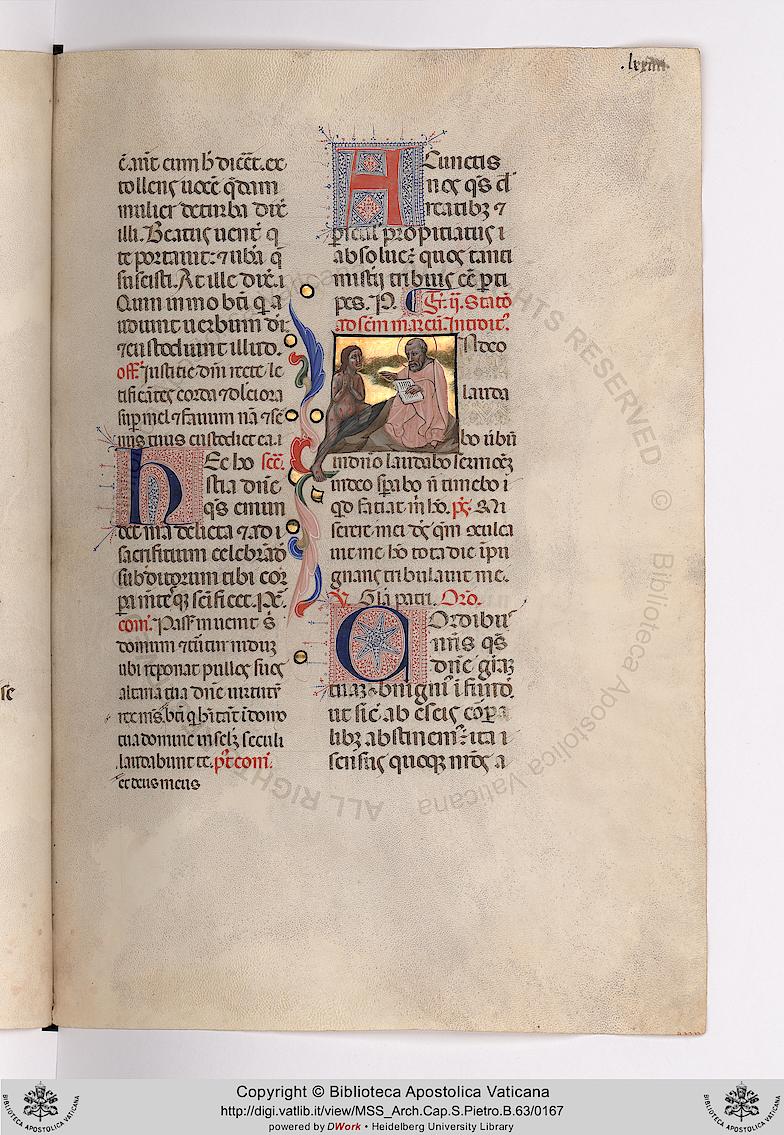 .lxxiiii.
c̄. aut̄ cum h̄ dicēt. ex
tollens uocē q̄dam
mulier de turba dix̄
illi. Beatus uent̄ q
te portauit: ⁊ ub̄a q̄
suxisti. At ille dix̄. i
Quin immo bt̄i q̄ a
udiunt uerbum di
⁊ custodiunt illud.
off̄. Iustitie dn̄i recte le
tificātes corda ⁊ dulciora
sup̄ mel ⁊ fauum nā ⁊ se
uus tuus custodiet ea. i
hEc bo sec̄.
stia dn̄e
q̄s emun
det nr̄a delicta ⁊ ad i
sacrificium celebrād
subditorum tibi cor
pa mentesq̄ scīficet. P.
com̄. Pass̄ inuenit s̄
domum ⁊ turtur nidūz
ubi reponat pullos suos
altaria tua dn̄e uirtutū
rex ms̄. bt̄i q̄ hītāt ī domo
tua domine in sclz̄ seculi
laudabunt te. pt̄ com̄.
et deus meus
A Cunctis
nos q̄s d̄
reatibz ⁊
picul̄ propitiatus i
absolue: quos tanti
misterii tribuis eē pti
pes. P. Fr̄. ii. Statō
ad scm̄ marcū. Introit̄.
IN deo
lauda
bo ūbū
in dn̄o laudabo sermonēz
in deo sp̄abo n̄ timebo i
q̄d faciat m̄ ho. ps̄. Mi
serere mei ds̄ qm̄ cōculca
uit me hō tota die īpu
gnans tribulauit me.
V. Gl̄a patri. Oro.
COrdibus
nr̄is q̄s
dn̄e grāz
tuaz benignus īfunde.
ut sic̄ ab escis corpa
libz abstinem: ita i
sensus quoqz nr̄os a
se
ALL RIGHTS RESERVED © Biblioteca Apostolica Vaticana
Copyright © Biblioteca Apostolica Vaticana
http://digi.vatlib.it/view/MSS_Arch.Cap.S.Pietro.B.63/0167
powered by DWork • Heidelberg University Library
BIBLIOTECA APOSTOLICA VATICANA
BIBLIOTECA APOSTOLICA VATICANA